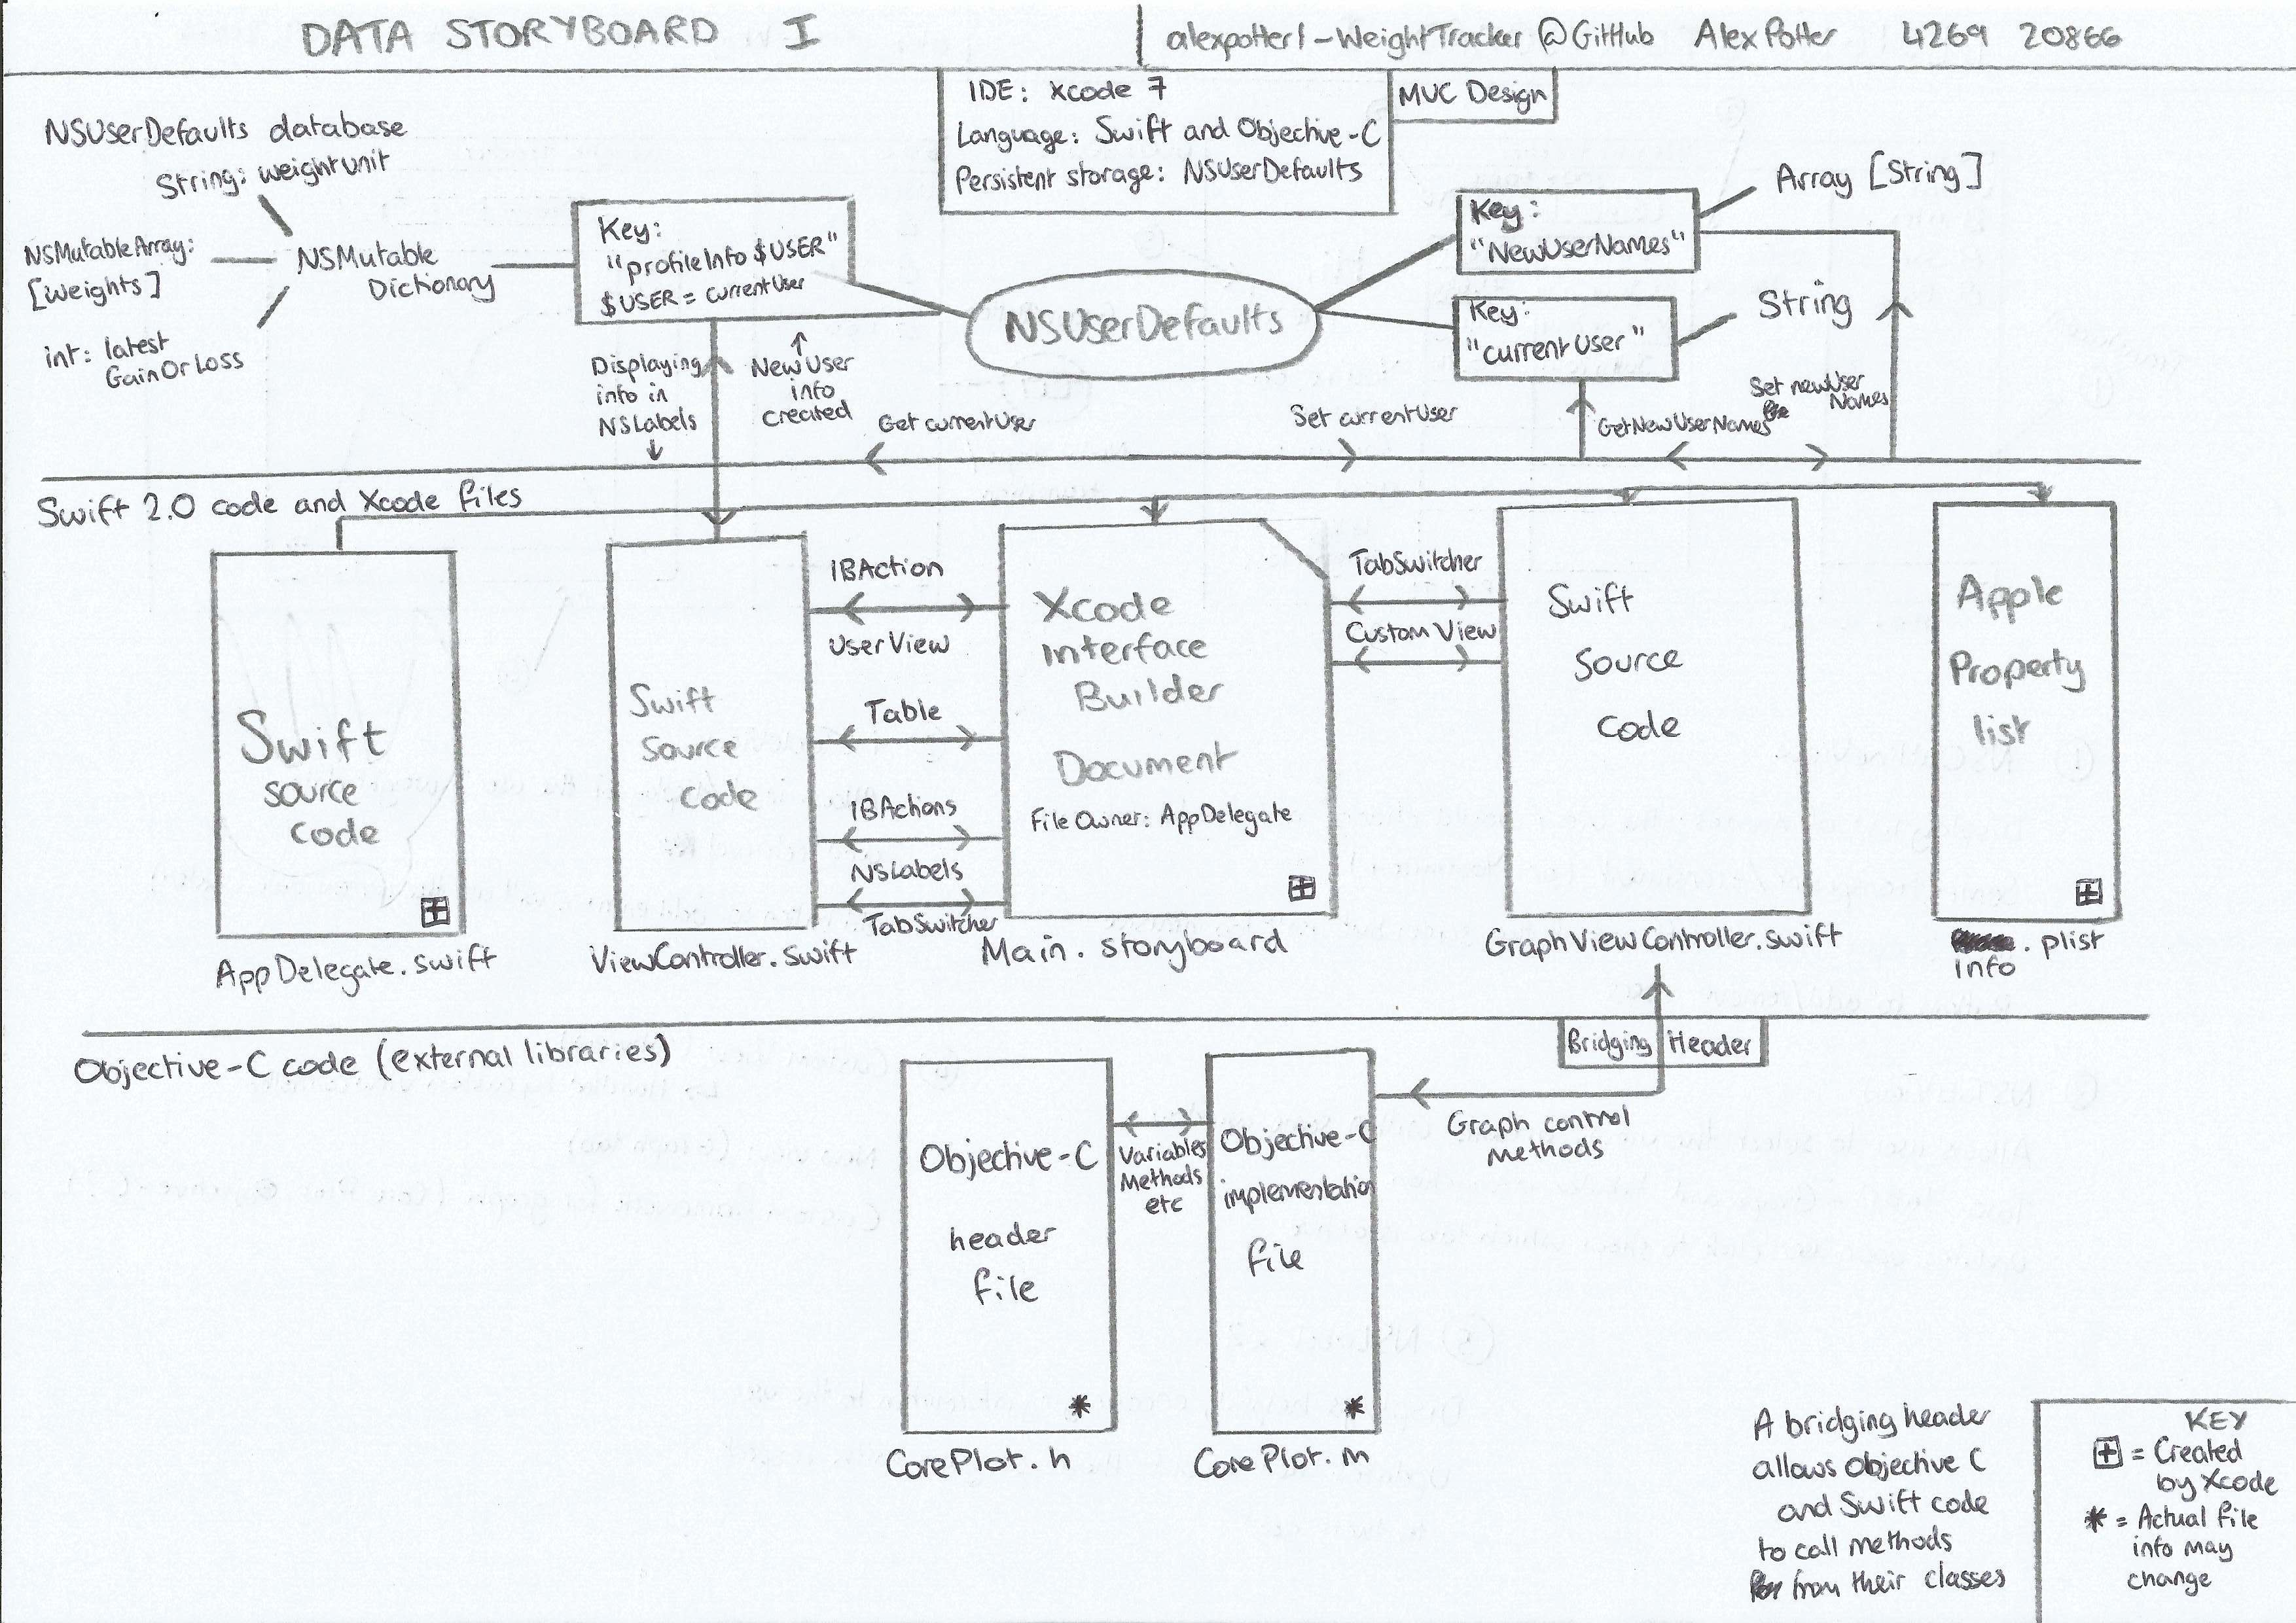 DATA STORYBOARD I
alexpotter1-WeightTracker @GitHub Alex Potter 4269 20866
IDE: Xcode 7
Language: Swift and Objective-C
Persistent storage: NSUserDefaults
MVC Design
NSUserDefaults database
String: weightUnit
NSMutableArray:
[Weights]
int: latest
GainOrLoss
NSMutable
Dictionary
Key:
"profileInfo $USER"
$USER = currentUser
NSUserDefaults
Key:
"NewUserNames"
Array [String]
Key:
"currentUser"
String
Displaying
info in
NSLabels
NewUser
info
created
Get currentUser
Set currentUser
GetNewUserNames
Set newUser
Names
Swift 2.0 code and Xcode files
Swift
source
code
AppDelegate.swift
Swift
source
code
ViewController.swift
IBAction
UserView
Table
IBActions
NSLabels
TabSwitcher
Xcode
Interface
Builder
Document
File Owner: AppDelegate
Main.storyboard
TabSwitcher
Custom View
Swift
source
code
GraphViewController.swift
Apple
Property
list
.plist
info
Objective-C code (external libraries)
Bridging Header
Objective-C
header
file
CorePlot.h
Variables
Methods
etc
Objective-C
implementation
file
CorePlot.m
Graph control
methods
A bridging header
allows Objective C
and Swift code
to call methods
from their classes
KEY
= Created
by Xcode
* = Actual file
info may
change